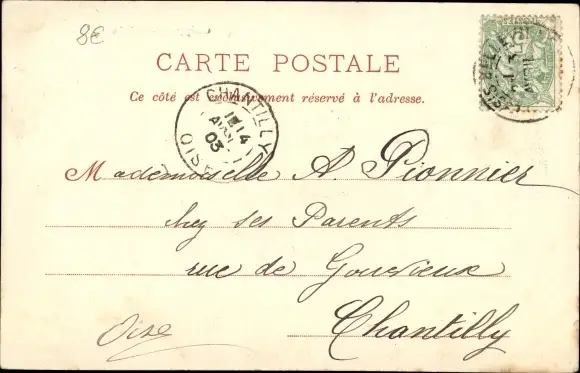 8€
CARTE POSTALE
Ce côté est exclusivement réservé à l'adresse.
CHANTILLY
14
AVRIL
03
OISE
AVRIL
Mademoiselle A Pionnier
chez ses Parents
rue de Gouvieux
Chantilly
Oise